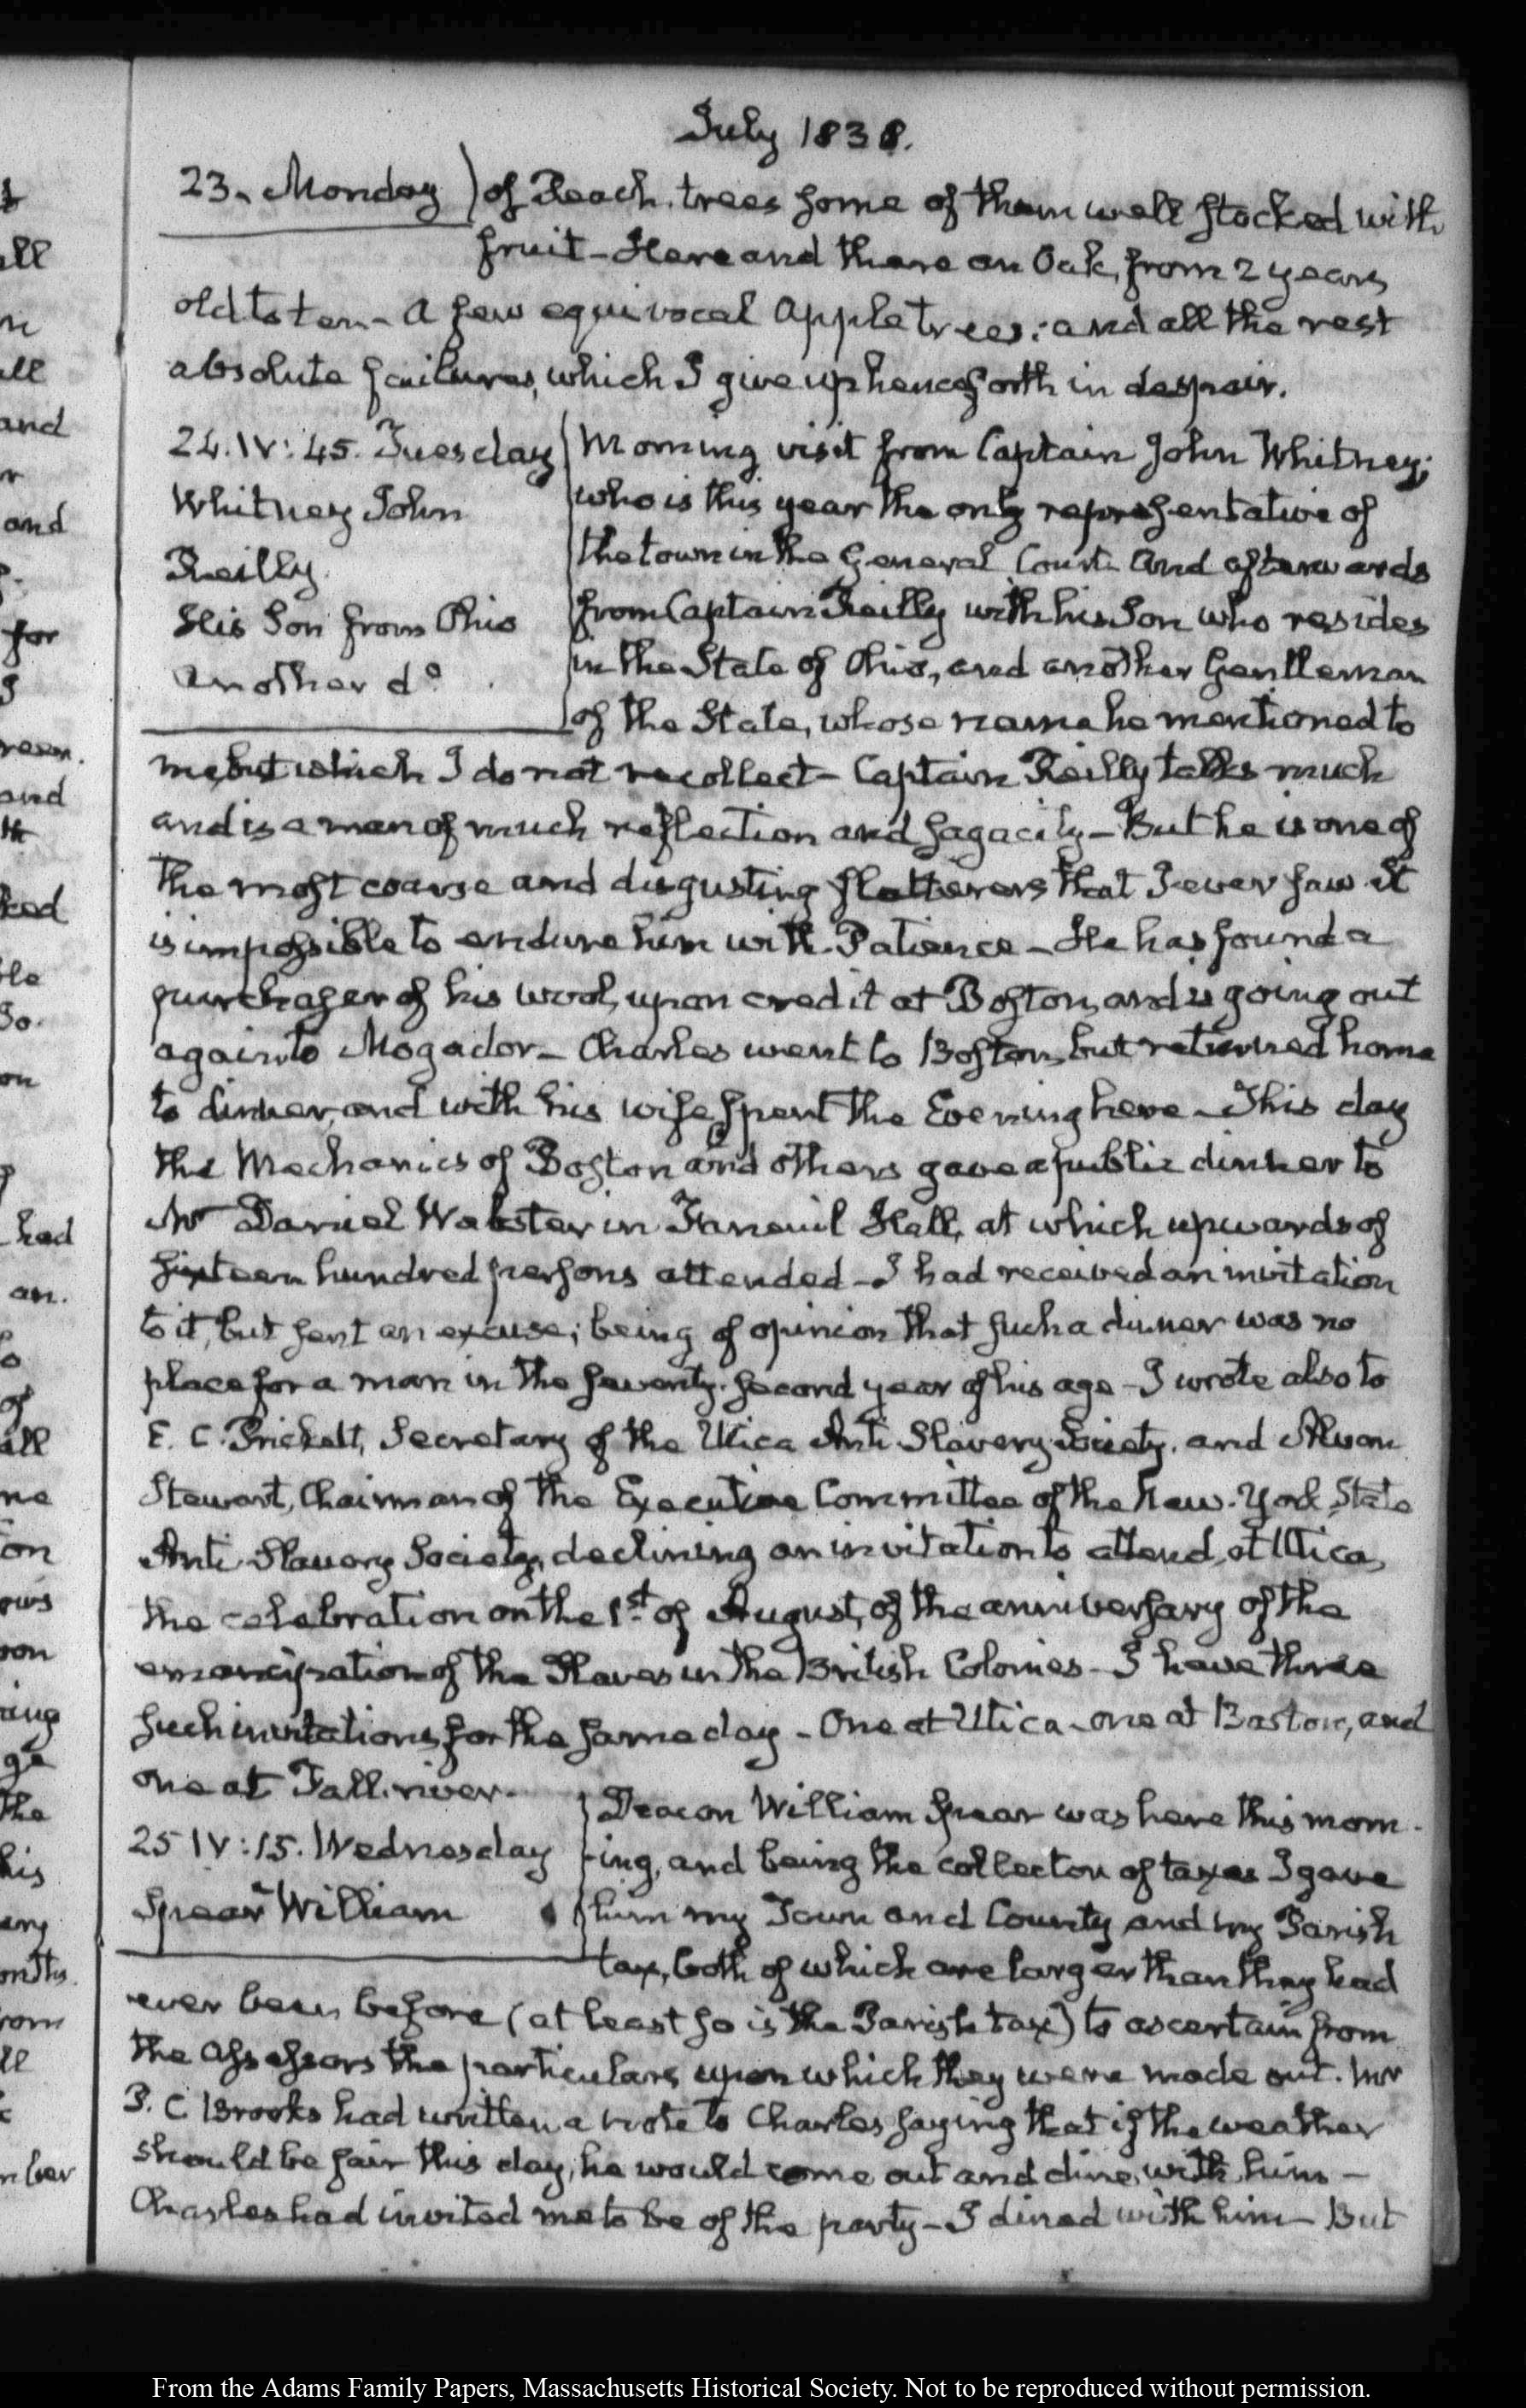 July 1838.
23. Monday) of Peach-trees some of them well stocked with
fruit – Here and there an Oak, from 2 years
old to ten – a few equivocal Apple trees: and all the rest
absolute failures, which I give up henceforth in despair.
24. IV:45. Tuesday
Whitney John
Reilly
His Son from Ohio
another do.
Morning visit from Captain John Whitney;
who is this year the only representative of
the town in the General Court. And afterwards
from Captain Reilly with his Son who resides
in the State of Ohio, and another Gentleman
of the State, whose name he mentioned to
me, but which I do not recollect – Captain Reilly talks much
and is a man of much reflection and sagacity – But he is one of
the most coarse and disgusting flatterers that I ever saw. It
is impossible to endure him with Patience – He has found a
purchaser of his wool, upon credit at Boston, and is going out
again to Mogador – Charles went to Boston, but returned home
to dinner, and with his wife spent the Evening here – This day
the Mechanics of Boston and others gave a public dinner to
Mr Daniel Webster in Faneuil Hall, at which upwards of
sixteen hundred persons attended – I had received an invitation
to it, but sent an excuse; being of opinion that such a dinner was no
place for a man in the seventy-second year of his age – I wrote also to
E. C. Prickett, Secretary of the Utica Anti Slavery Society, and Alvan
Stewart, Chairman of the Executive Committee of the New-York State
Anti Slavery Society, declining an invitation to attend, at Utica,
the celebration on the 1st of August, of the anniversary of the
emancipation of the Slaves in the British Colonies – I have three
such invitations for the same day – One at Utica – one at Boston, and
one at Fall-river –
25 IV:15. Wednesday
Spear William
Deacon William Spear was here this morn-
-ing, and being the collector of taxes I gave
him my Town and County and my Parish
tax, both of which are larger than they had
ever been before (at least so is the Parish tax) to ascertain from
the assessors the particulars upon which they were made out. Mr
P. C. Brooks had written a note to Charles saying that if the weather
should be fair this day, he would come out and dine with him –
Charles had invited me to be of the party – I dined with him – But
From the Adams Family Papers, Massachusetts Historical Society. Not to be reproduced without permission.